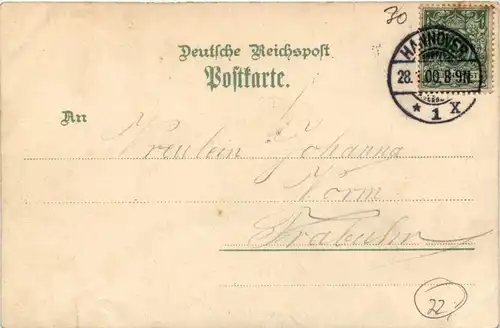 30
Deutsche Reichspost
Postkarte.
HANNOVER
28. 00. 8-9N.
* 1 X
An
Freulein Johanna
Worm
22